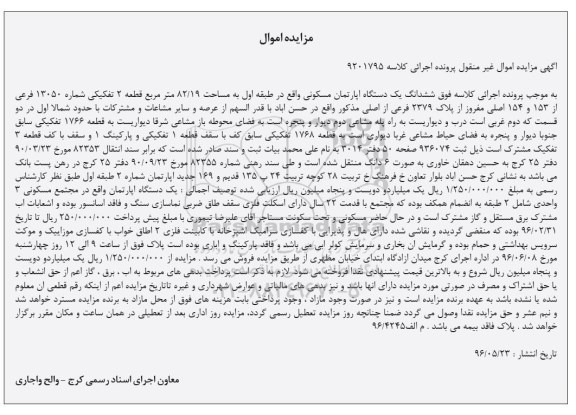 مزایده اموال
آگهی مزایده اموال غیر منقول پرونده اجرائی کلاسه ۹۲۰۱۷۹۵
به موجب پرونده اجرائی کلاسه فوق ششدانگ یک دستگاه آپارتمان مسکونی واقع در طبقه اول به مساحت ۸۲/۱۹ متر مربع قطعه ۲ تفکیکی شماره ۱۳۰۵۰ فرعی
از ۱۵۳ و ۱۵۴ اصلی مفروز از پلاک ۲۳۷۹ فرعی از اصلی مذکور واقع در حسن آباد با قدر السهم از عرصه و سایر مشاعات و مشترکات با حدود شمالا اول در دو
قسمت که دوم غربی است درب و دیواریست به راه پله مشاعی دوم دیوار و پنجره است به فضای محوطه باز مشاعی شرقا دیواریست به قطعه ۱۷۶۶ تفکیکی سابق
جنوبا دیوار و پنجره به فضای حیاط مشاعی غربا دیواری به قطعه ۱۷۶۸ تفکیکی سابق کف با سقف قطعه ۱ تفکیکی و پارکینگ ۱ و سقف با کف قطعه ۳
تفکیک مشترک است ذیل ثبت ۹۳۶۰۷۴ صفحه ۵۰ دفتر ۳۰۱۲ به نام علی محمد بیات ثبت و سند صادر شده است که برابر سند انتقال ۸۲۳۵۳ مورخ ۹۰/۰۳/۲۳
دفتر ۲۵ کرج به حسین دهقان خاوری به صورت ۶ دانگ منتقل شده است و طی سند رهنی شماره ۸۲۳۵۵ مورخ ۹۰/۰۹/۲۳ دفتر ۲۵ کرج در رهن پست بانک
می باشد به نشانی کرج حسن آباد بلوار تعاون خ فرهنگ خ تربیت ۲۸ کوچه تربیت ۲۴ پ ۱۳۵ قدیم و ۱۶۹ جدید آپارتمان شماره ۲ طبقه اول طبق نظر کارشناس
رسمی به مبلغ ۱/۲۵۰/۰۰۰/۰۰۰ ریال یک میلیاردو دویست و پنجاه میلیون ریال ارزیابی شده توصیف اجمالی : یک دستگاه آپارتمان واقع در مجتمع مسکونی ۳
واحدی شامل ۲ طبقه به انضمام همکف بوده که مجتمع با قدمت ۲۲ سال دارای اسکلت فلزی سقف طاق ضربی نماسازی سنگ و فاقد آسانسور بوده و انشعابات آب
مشترک برق مستقل و گاز مشترک است و در حال حاضر مسکونی و تحت سکونت مستاجر آقای علیرضا تیموری با مبلغ پیش پرداخت ۲۵۰/۰۰۰/۰۰۰ ریال تا تاریخ
۹۶/۰۲/۳۱ بوده که منقضی گردیده و نقاشی شده دارای هال و پذیرایی با کفسازی سرامیک آشپزخانه با کابینت فلزی ۲ اطاق خواب با کفسازی موزاییک و موکت
سرویس بهداشتی و حمام بوده و گرمایش آن بخاری و سرمایش کولر آبی می باشد و فاقد پارکینگ و انباری بوده است پلاک فوق از ساعت ۹ الی ۱۲ روز چهارشنبه
مورخ ۹۶/۰۶/۰۸ در اداره اجرای کرج میدان آزادگاه ابتدای خیابان مطهری از طریق مزایده فروش می رسد . مزایده از ۱/۲۵۰/۰۰۰/۰۰۰ ریال یک میلیاردو دویست
و پنجاه میلیون ریال شروع و به بالاترین قیمت پیشنهادی نقدا فروخته می شود. لازم به ذکر است پرداخت بدهی های مربوط به آب ، برق ، گاز اعم از حق انشعاب و
یا حق اشتراک و مصرف در صورتی مورد مزایده دارای آنها باشد و نیز بدهی های مالیاتی و عوارض شهرداری و غیره تاتاریخ مزایده اعم از اینکه رقم قطعی آن معلوم
شده یا نشده باشد به عهده برنده مزایده است و نیز در صورت وجود مازاد ، وجوه پرداختی بابت هزینه های فوق از محل مازاد به برنده مزایده مسترد خواهد شد
و نیم عشر و حق مزایده نقدا وصول می گردد ضمنا چنانچه روز مزایده تعطیل رسمی گردد، مزایده روز اداری بعد از تعطیلی در همان ساعت و مکان مقرر برگزار
خواهد شد . پلاک فاقد بیمه می باشد . م الف۹۶/۴۲۴۵
تاریخ انتشار : ۹۶/۰۵/۲۳
معاون اجرای اسناد رسمی کرج - والح واجاری